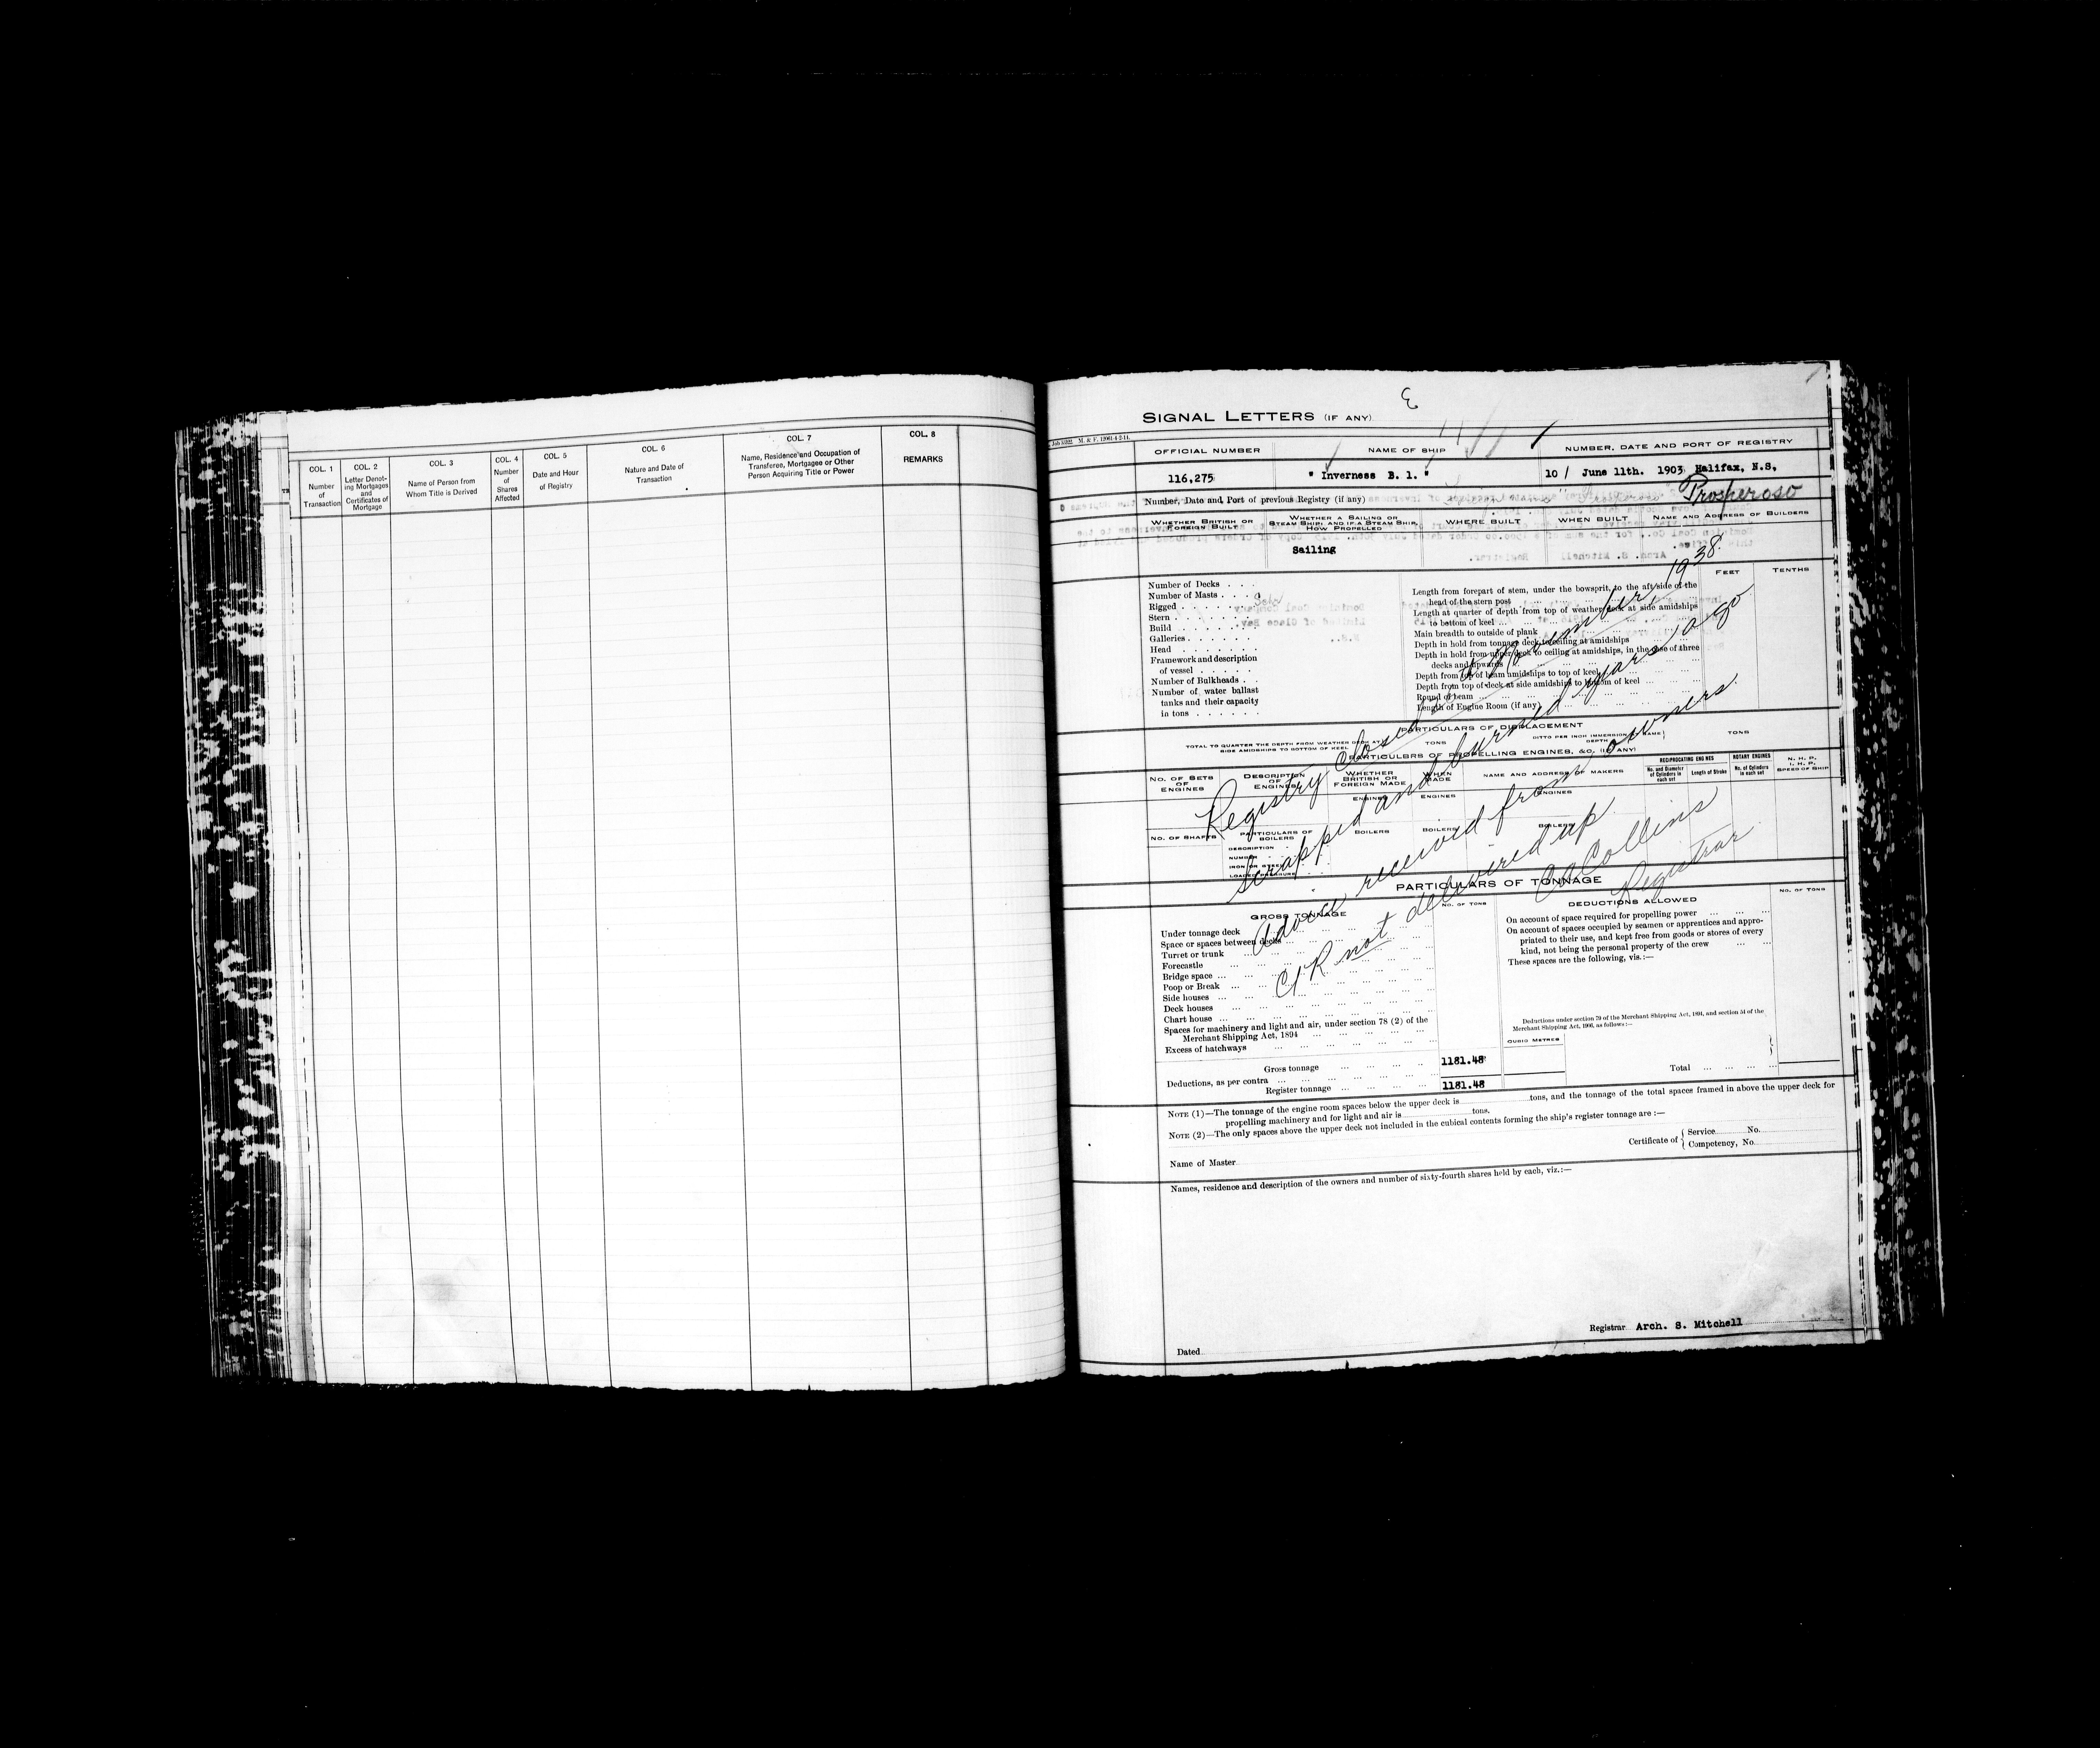 COL. 1
Number
of
Transaction
COL. 2
Letter Denot-
ing Mortgages
and
Certificates of
Mortgage
COL. 3
Name of Person from
Whom Title is Derived
COL. 4
Number
of
Shares
Affected
COL. 5
Date and Hour
of Registry
COL. 6
Nature and Date of
Transaction
COL. 7
Name, Residence and Occupation of
Transferee, Mortgagee or Other
Person Acquiring Title or Power
COL. 8
REMARKS
3
SIGNAL LETTERS (IF ANY)
OFFICIAL NUMBER
116,275
NAME OF SHIP
" Inverness B. 1. "
NUMBER, DATE AND PORT OF REGISTRY
10 / June 11th. 1903 Halifax, N.S,
Number, Date and Port of previous Registry (if any)
Prosperoso
WHETHER BRITISH OR
FOREIGN BUILT
WHETHER A SAILING OR
STEAM SHIP; AND IF A STEAM SHIP,
HOW PROPELLED
Sailing
WHERE BUILT
WHEN BUILT
NAME AND ADDRESS OF BUILDERS
Number of Decks
Number of Masts
Rigged
Stern
Build
Galleries
Head
Framework and description
of vessel
Number of Bulkheads
Number of water ballast
tanks and their capacity
in tons
FEET
TENTHS
Length from forepart of stem, under the bowsprit, to the aft side of the
head of the stern post
Length at quarter of depth from top of weather deck at side amidships
to bottom of keel
Main breadth to outside of plank
Depth in hold from tonnage deck to ceiling at amidships
Depth in hold from upper deck to ceiling at amidships, in the case of three
decks and upwards
Depth from top of beam amidships to top of keel
Depth from top of deck at side amidships to bottom of keel
Round of beam
Length of Engine Room (if any)
PARTICULARS OF DISPLACEMENT
TOTAL TO QUARTER THE DEPTH FROM WEATHER DECK AT
SIDE AMIDSHIPS TO BOTTOM OF KEEL
TONS
DITTO PER INCH IMMERSION AT SAME
DEPTH
TONS
PARTICULARS OF PROPELLING ENGINES, &C. (IF ANY)
NO. OF SETS
OF
ENGINES
DESCRIPTION
OF
ENGINES
WHETHER
BRITISH OR
FOREIGN MADE
WHEN
MADE
NAME AND ADDRESS OF MAKERS
RECIPROCATING ENGINES
No. and Diameter
of Cylinders in
each set
Length of Stroke
ROTARY ENGINES
No. of Cylinders
in each set
N. H. P.
I. H. P.
SPEED OF SHIP
ENGINES
ENGINES
ENGINES
NO. OF SHAFTS
PARTICULARS OF
BOILERS
BOILERS
BOILERS
BOILERS
DESCRIPTION
NUMBER
IRON OR STEEL
LOADED PRESSURE
Registry closed November 1938.
Scrapped and burned years ago
Advice received from owners.
C/R not delivered up.
Collins
Registrar
PARTICULARS OF TONNAGE
GROSS TONNAGE
NO. OF TONS
Under tonnage deck
Space or spaces between decks
Turret or trunk
Forecastle
Bridge space
Poop or Break
Side houses
Deck houses
Chart house
Spaces for machinery and light and air, under section 78 (2) of the
Merchant Shipping Act, 1894
Excess of hatchways
Gross tonnage 1181.48
Deductions, as per contra
Register tonnage 1181.48
DEDUCTIONS ALLOWED
NO. OF TONS
On account of space required for propelling power
On account of spaces occupied by seamen or apprentices and appro-
priated to their use, and kept free from goods or stores of every
kind, not being the personal property of the crew
These spaces are the following, vis.:—
Deductions under section 79 of the Merchant Shipping Act, 1894, and section 54 of the
Merchant Shipping Act, 1906, as follows:—
CUBIC METRES
Total
NOTE (1)—The tonnage of the engine room spaces below the upper deck is tons, and the tonnage of the total spaces framed in above the upper deck for
propelling machinery and for light and air is tons.
NOTE (2)—The only spaces above the upper deck not included in the cubical contents forming the ship's register tonnage are :—
Name of Master
Certificate of { Service No.
Competency, No.
Names, residence and description of the owners and number of sixty-fourth shares held by each, viz.:—
Registrar Arch. S. Mitchell
Dated